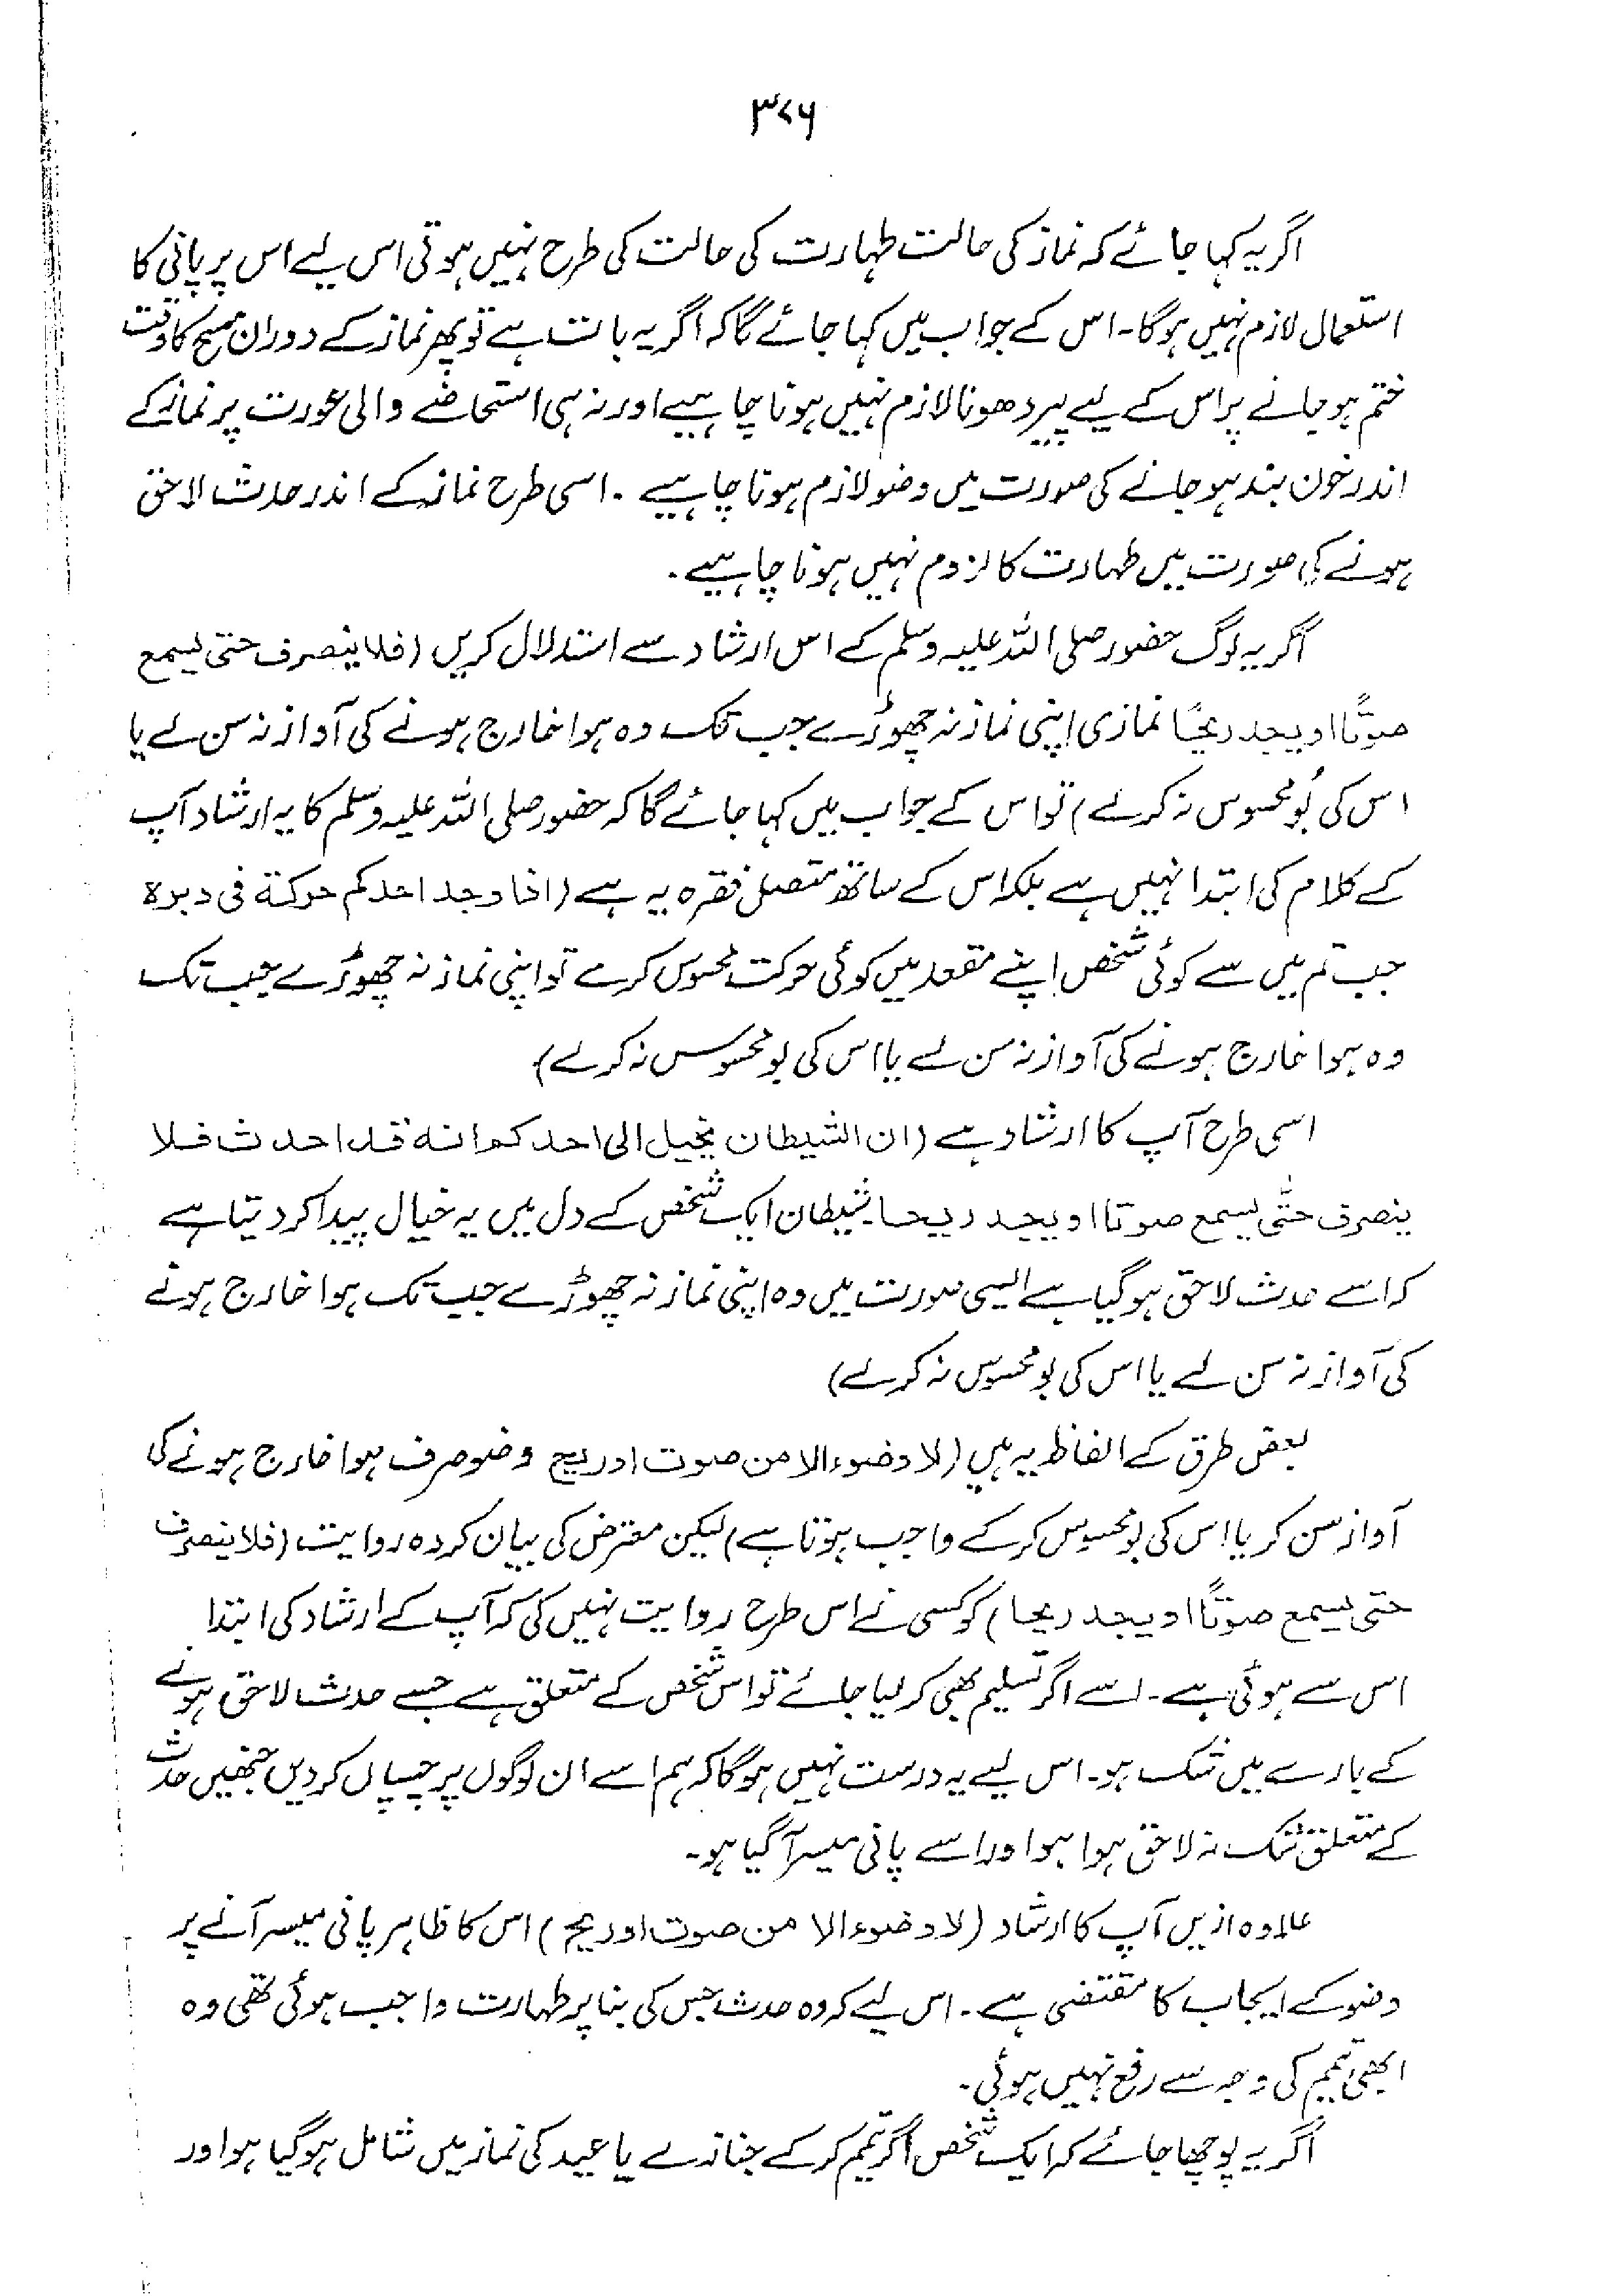 ۳۷۶
اگر یہ کہا جائے کہ نماز کی حالت طہارت کی حالت کی طرح نہیں ہوتی اس لیے اس پر پانی کا
استعمال لازم نہیں ہوگا۔ اس کے جواب میں کہا جائے گا کہ اگر یہ بات ہے تو پھر نماز کے دوران مسح کا وقت
ختم ہو جانے پر اس کے لیے پیر دھونا لازم نہیں ہونا چاہیے اور نہ ہی استحاضے والی عورت پر نماز کے
اندر خون بند ہو جانے کی صورت میں وضو لازم ہونا چاہیے۔ اسی طرح نماز کے اندر حدث لاحق
ہونے کی صورت میں طہارت کا لزوم نہیں ہونا چاہیے۔
اگر یہ لوگ حضور صلی اللہ علیہ وسلم کے اس ارشاد سے استدلال کریں (فلا ینصرف حتی یسمع
صوتًا او یجد ریحًا نمازی اپنی نماز نہ چھوڑے جب تک وہ ہوا خارج ہونے کی آواز نہ سن لے یا
اس کی بُو محسوس نہ کرلے) تو اس کے جواب میں کہا جائے گا کہ حضور صلی اللہ علیہ وسلم کا یہ ارشاد آپ
کے کلام کی ابتدا نہیں ہے بلکہ اس کے ساتھ متصل فقرہ یہ ہے (اذا وجد احدکم حرکة فی دبرة
جب تم میں سے کوئی شخص اپنے مقعد میں کوئی حرکت محسوس کرے تو اپنی نماز نہ چھوڑے جب تک
وہ ہوا خارج ہونے کی آواز نہ سن لے یا اس کی بو محسوس نہ کرلے)
اسی طرح آپ کا ارشاد ہے (ان الشیطان یخیل الی احدکم انه قد احدث فلا
ینصرف حتّٰی یسمع صوتا او یجد ریحا۔ شیطان ایک شخص کے دل میں یہ خیال پیدا کر دیتا ہے
کہ اسے حدث لاحق ہوگیا ہے ایسی صورت میں وہ اپنی نماز نہ چھوڑے جب تک ہوا خارج ہونے
کی آواز نہ سن لے یا اس کی بو محسوس نہ کرلے)
بعض طرق کے الفاظ یہ ہیں (لا وضوء الا من صوت او ریح وضو صرف ہوا خارج ہونے کی
آواز سن کر یا اس کی بو محسوس کرکے واجب ہوتا ہے) لیکن معترض کی بیان کردہ روایت (فلا ینصرف
حتی یسمع صوتًا او یجد ریحا) کو کسی نے اس طرح روایت نہیں کی کہ آپ کے ارشاد کی ابتدا
اس سے ہوئی ہے۔ اسے اگر تسلیم بھی کر لیا جائے تو اس شخص کے متعلق ہے جسے حدث لاحق ہونے
کے بارے میں شک ہو۔ اس لیے یہ درست نہیں ہوگا کہ ہم اسے ان لوگوں پر چسپاں کردیں جنھیں حدث
کے متعلق شک نہ لاحق ہوا ہو اور اسے پانی میسر آگیا ہو۔
علاوہ ازیں آپ کا ارشاد (لا وضوء الا من صوت او ریح) اس کا ظاہر پانی میسر آنے پر
وضو کے ایجاب کا مقتضی ہے۔ اس لیے کہ وہ حدث جس کی بنا پر طہارت واجب ہوئی تھی وہ
ابھی تیمم کی وجہ سے رفع نہیں ہوئی۔
اگر یہ پوچھا جائے کہ ایک شخص اگر تیمم کرکے جنازے یا عید کی نماز میں شامل ہوگیا ہو اور